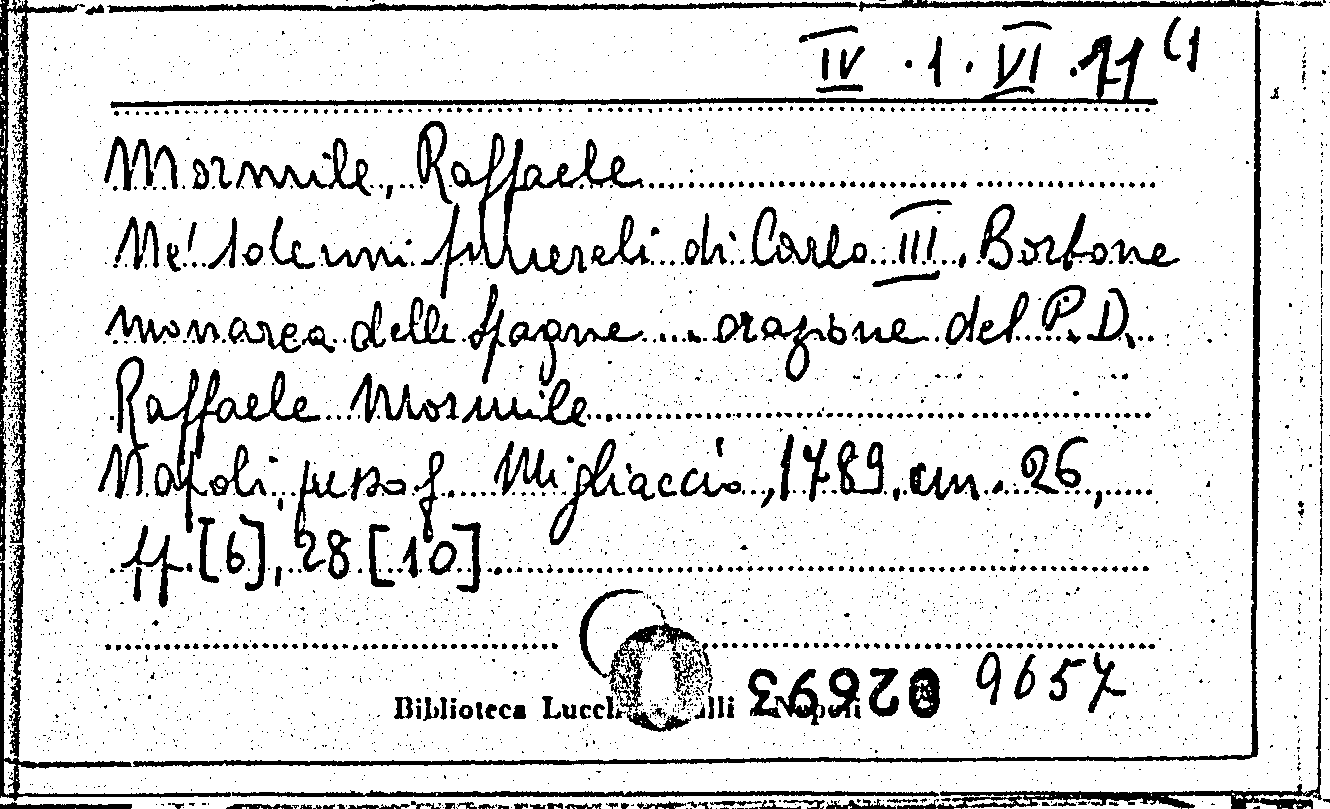 IV . 1 . VI . 11 (1
Mormile, Raffaele
Ne' solenni funerali di Carlo III. Borbone
monarca delle Spagne ... orazione del P. D.
Raffaele Mormile
Napoli, presso G. Migliaccio, 1789. cm. 26,
pp. [6], 28 [10]
026993 9657
Biblioteca Napoli